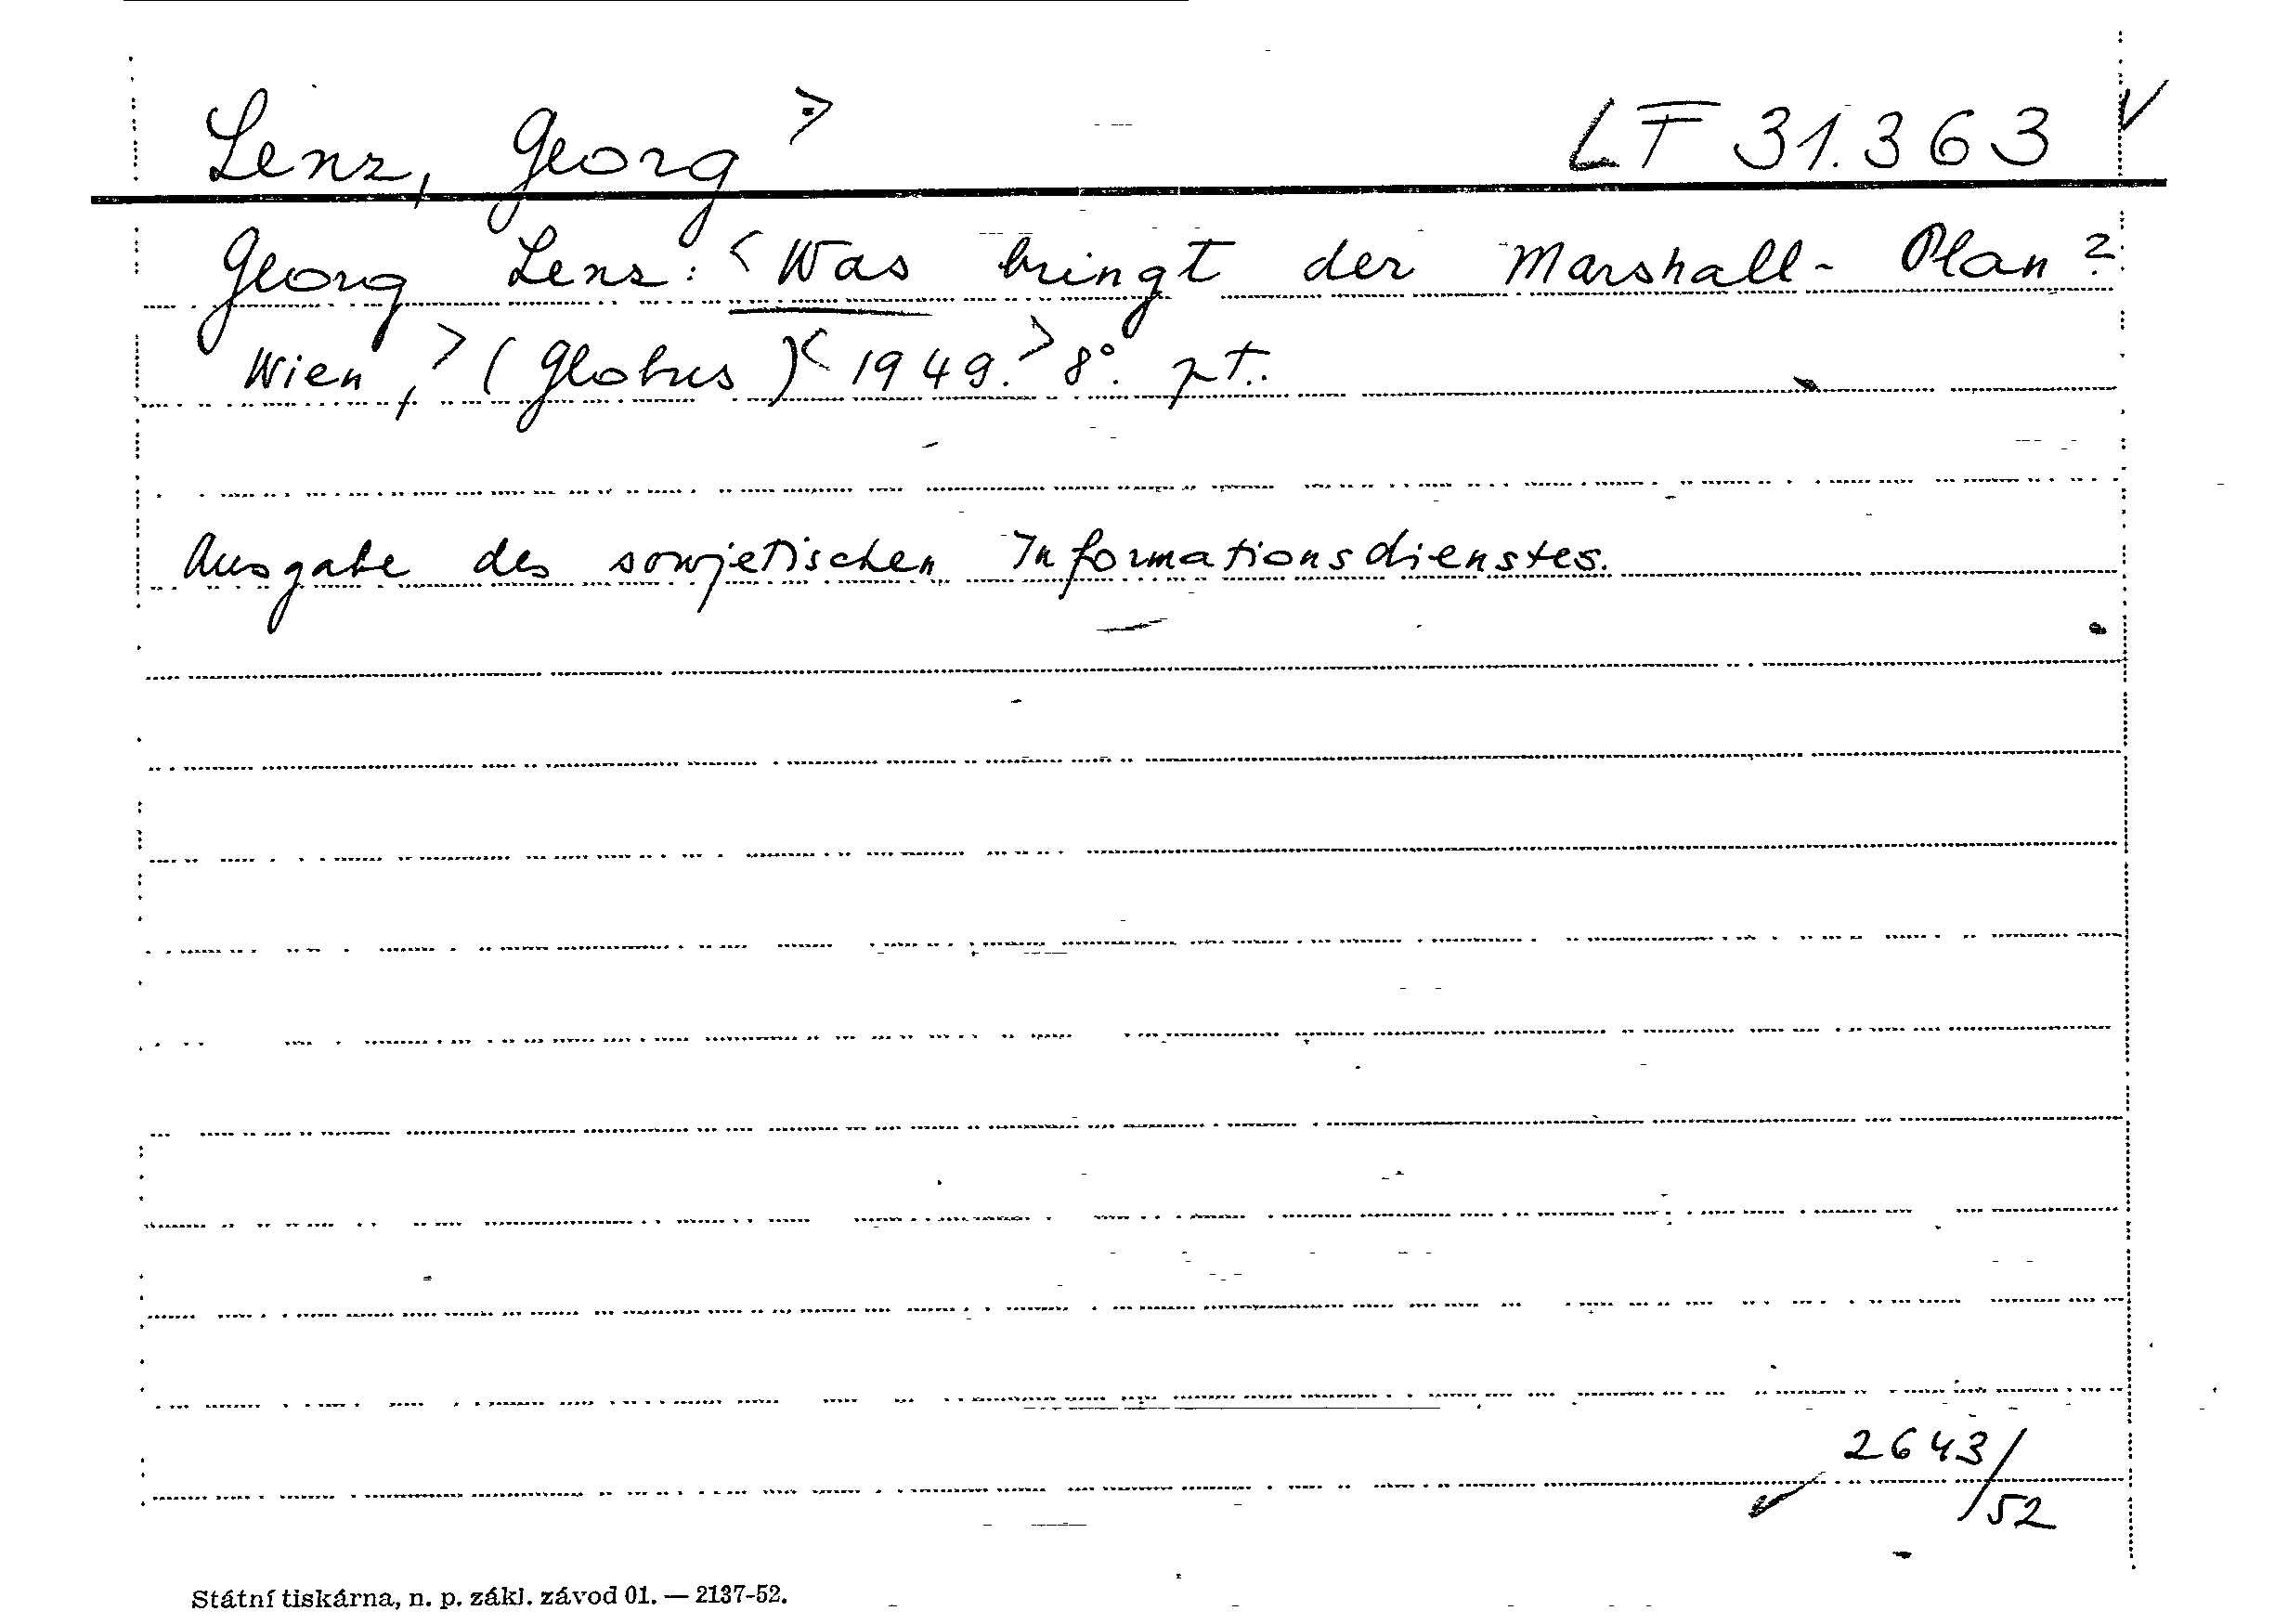 Lenz, Georg > LT 31.363 ✓
Georg Lenz: <Was bringt der Marshall-Plan?
Wien,> (Globus)<1949.> 8°. pt..
Ausgabe des sowjetischen Informationsdienstes.
2643/
✓ 52
Státní tiskárna, n. p. zákl. závod 01. — 2137-52.